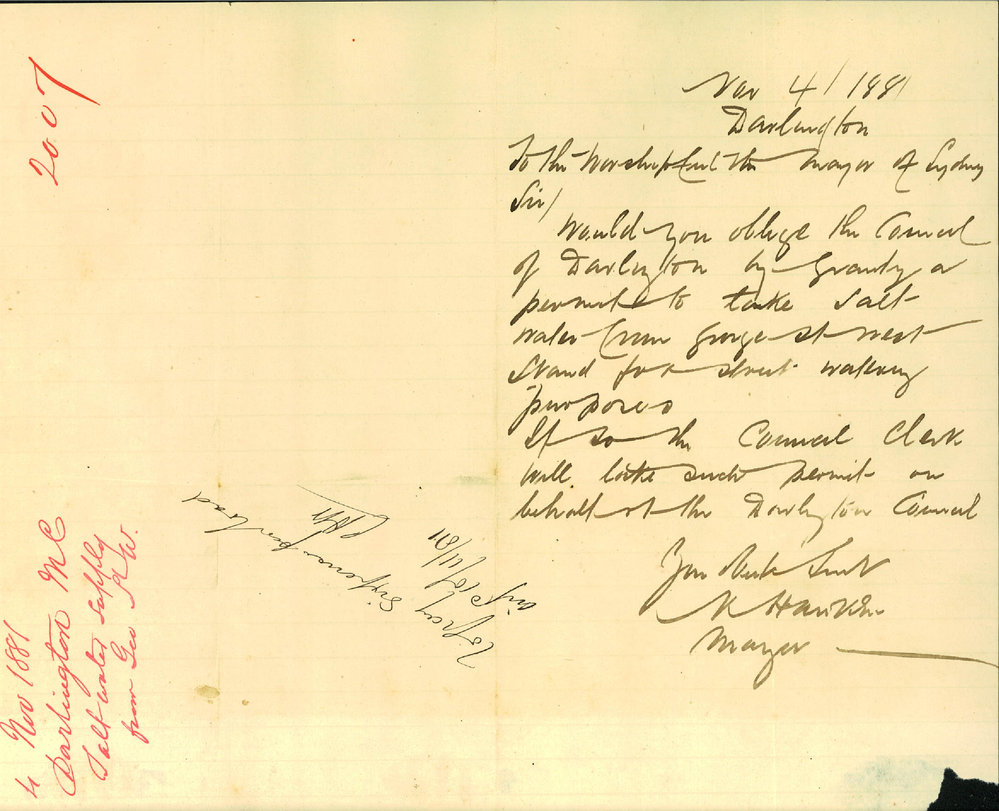 Nov 4/1881
Darlington
To the Worshipful the Mayor of Sydney
Sir/
Would you oblige the Council
of Darlington by Granting a
permit to take Salt
water from George st west
Stand for street watering
purposes
If so the Council Clerk
will take such permit on
behalf of the Darlington Council
Your Obdt Servt
Hawkin
Mayor
2007
4 Nov 1881
Darlington MC
Salt water supply
from Geo St W.
Sixpence per load
10/11/81